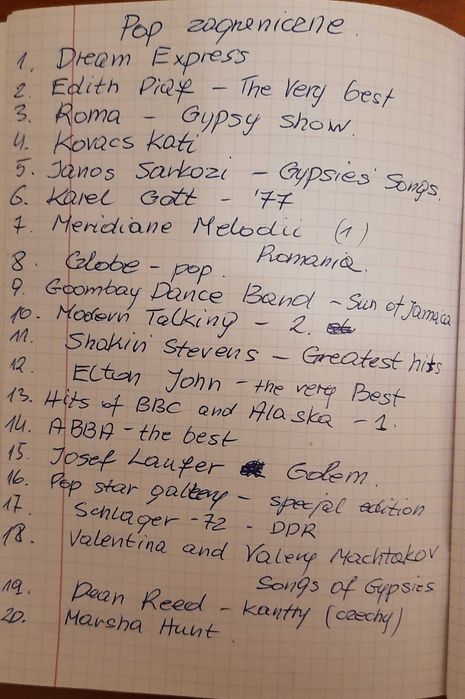 Pop zagranicene.
1. Dream Express
2. Edith Piaf - The Very best
3. Roma - Gypsy show.
4. Kovacs Kati
5. Janos Sarkozi - Gypsies' Songs.
6. Karel Gott - '77
7. Meridiane Melodii (1)
Romania.
8. Globe - pop.
9. Goombay Dance Band - Sun of Jamaica
10. Modern Talking - 2.
11. Shakin' Stevens - Greatest hits
12. Elton John - the very Best
13. Hits of BBC and Alaska - 1.
14. ABBA - the best
15. Josef Laufer Golem.
16. Pop star gallery - special edition
17. Schlager - 72 - DDR
18. Valentina and Valery Machtakov
Songs of Gypsies
19. Dean Reed - kantry (czechy)
20. Marsha Hunt.